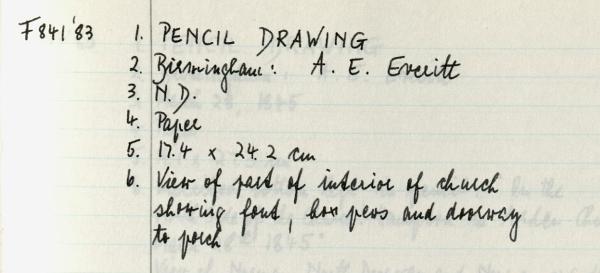 F841'83 1. PENCIL DRAWING
2. Birmingham: A. E. Everitt
3. N.D.
4. Paper
5. 17.4 x 24.2 cm
6. View of part of interior of church
showing font, box pews and doorway
to porch